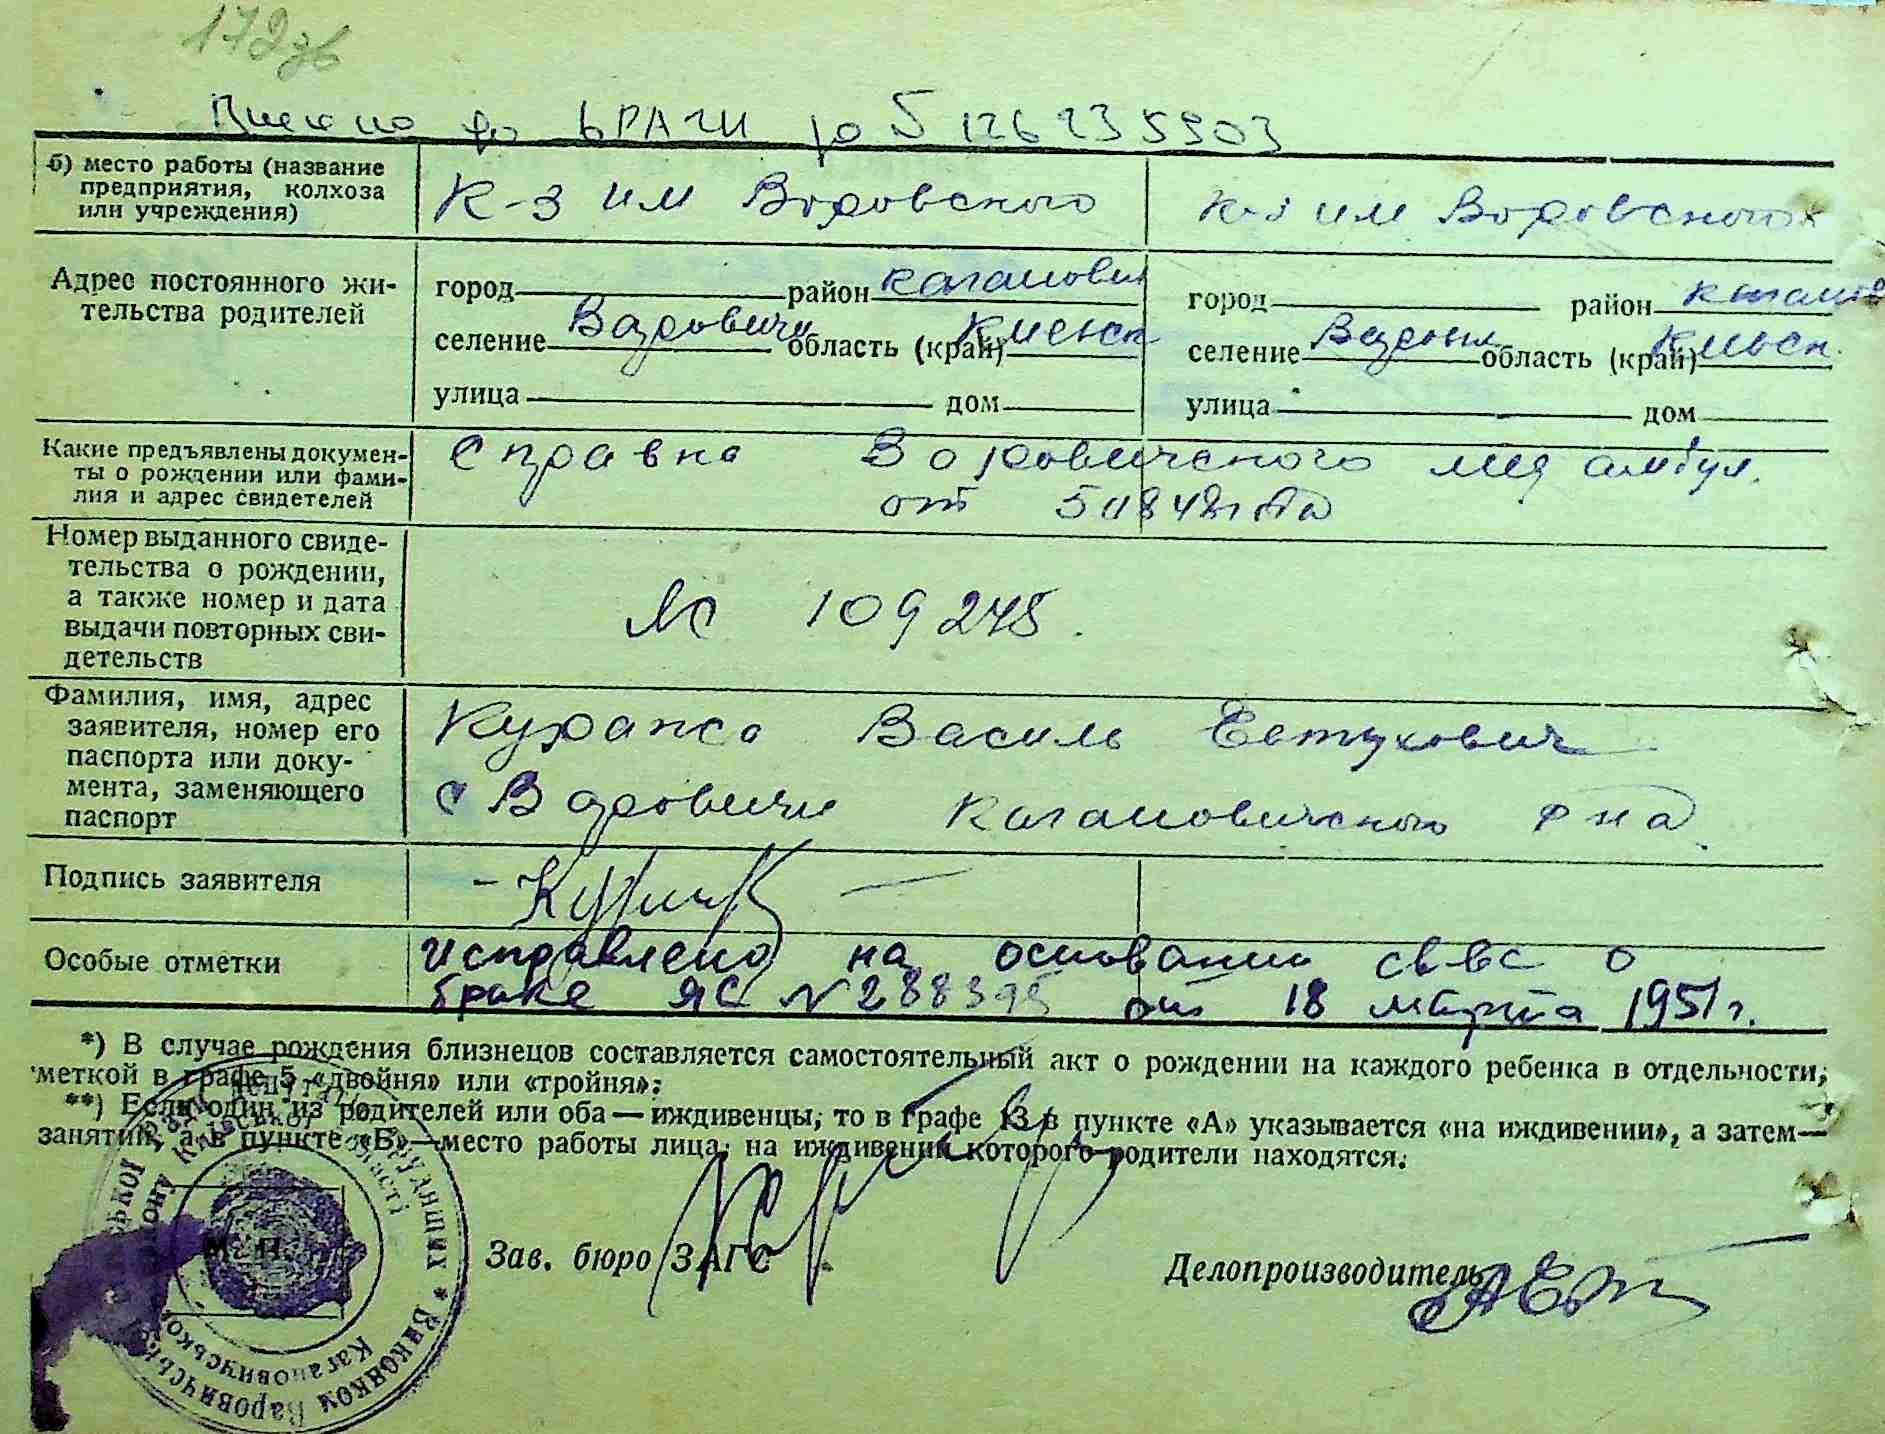 172зв
б) место работы (название предприятия, колхоза или учреждения)
К-з им Воровского
К-з им Воровского
Адрес постоянного жительства родителей
город район Каганович
селение Варовичи область (край) Киевск
улица дом
город район Каганов
селение Варович область (край) Киевск.
улица дом
Какие предъявлены документы о рождении или фамилия и адрес свидетелей
Справка Воровичского мед амбул.
от
Номер выданного свидетельства о рождении, а также номер и дата выдачи повторных свидетельств
№ 109245.
Фамилия, имя, адрес заявителя, номер его паспорта или документа, заменяющего паспорт
Василь Евтухович
с Варовичи Кагановичского р на
Подпись заявителя
Особые отметки
исправлено на основании св-вс о
браке ЯС № 288395 от 18 марта 1951 г.
*) В случае рождения близнецов составляется самостоятельный акт о рождении на каждого ребенка в отдельности,
меткой в графе 5 «двойня» или «тройня».
**) Если один из родителей или оба — иждивенцы, то в графе 13 в пункте «А» указывается «на иждивении», а затем—
занятия, а в пункте «Б»—место работы лица, на иждивении которого родители находятся.
М. П.
Зав. бюро ЗАГС
Делопроизводитель